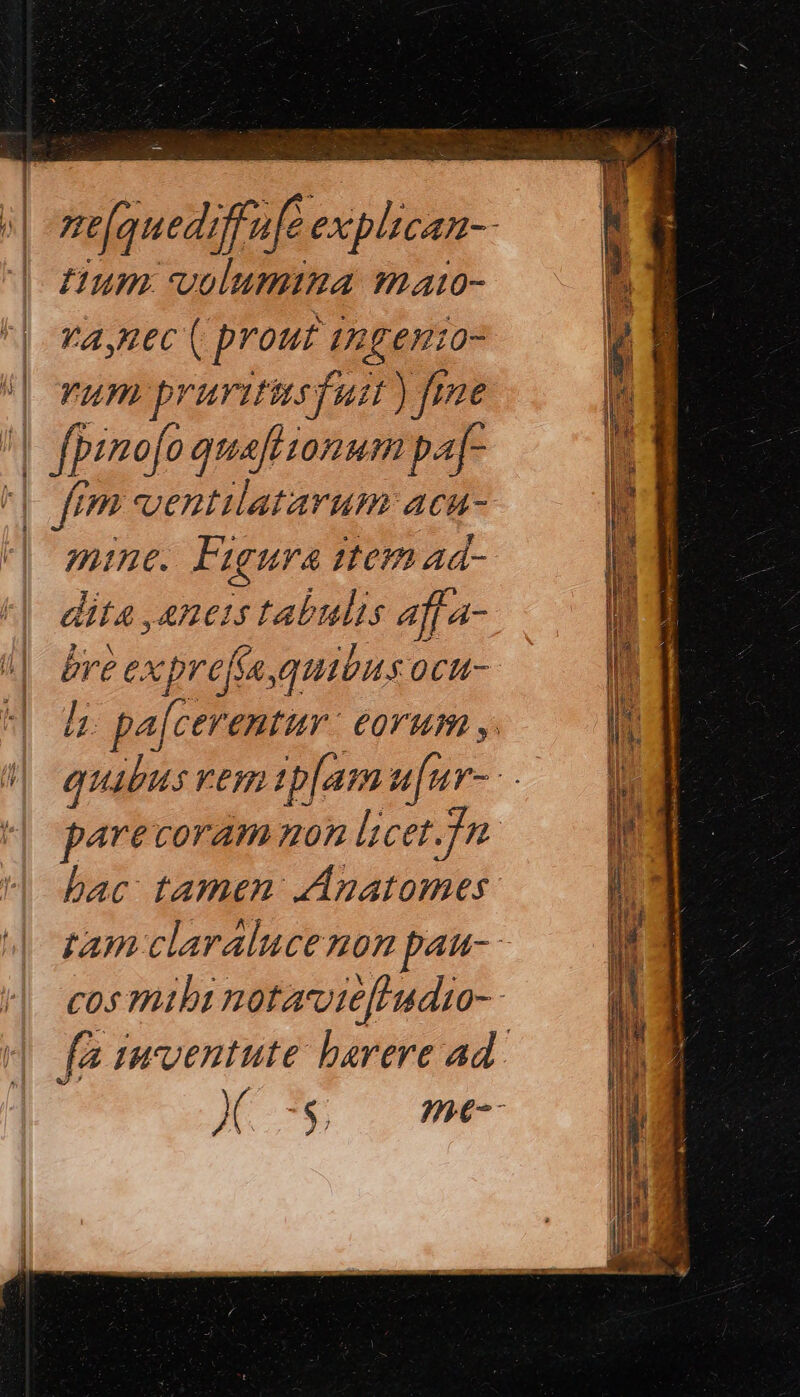 neſquediffuſè explican-
tium volumina maio-
ra, nec ( prout ingenio-
rum pruritus fuit ) ſine
ſpinoſo quæſtionum paſ-
ſim ventilatarum acu-
mine. Figuræ item ad-
ditæ, æneis tabulis affa-
brè expreſſæ, quibus ocu-
li paſcerentur eorum,
quibus rem ipſam uſur-
pare coram non licet. In
hac tamen Anatomes
tam clarâ luce non pau-
cos mihi nota vieſtudio-
ſa iuventute hærere ad
)( 5 me-